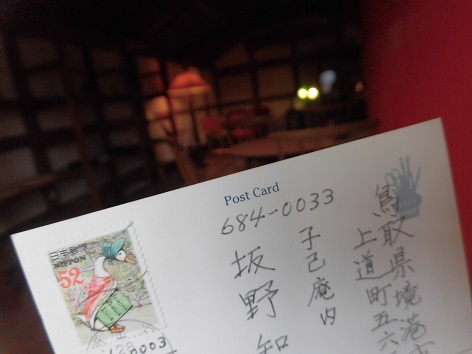 Post Card
684-0033
鳥取県境港
上道町五六
子己庵内
坂野知
日本郵便
NIPPON
52
0003